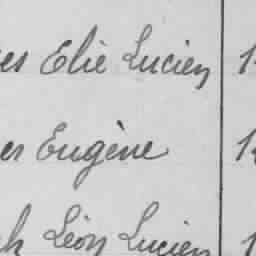 es Elie Lucien 1
er Eugène 1
h Léon Lucien 1